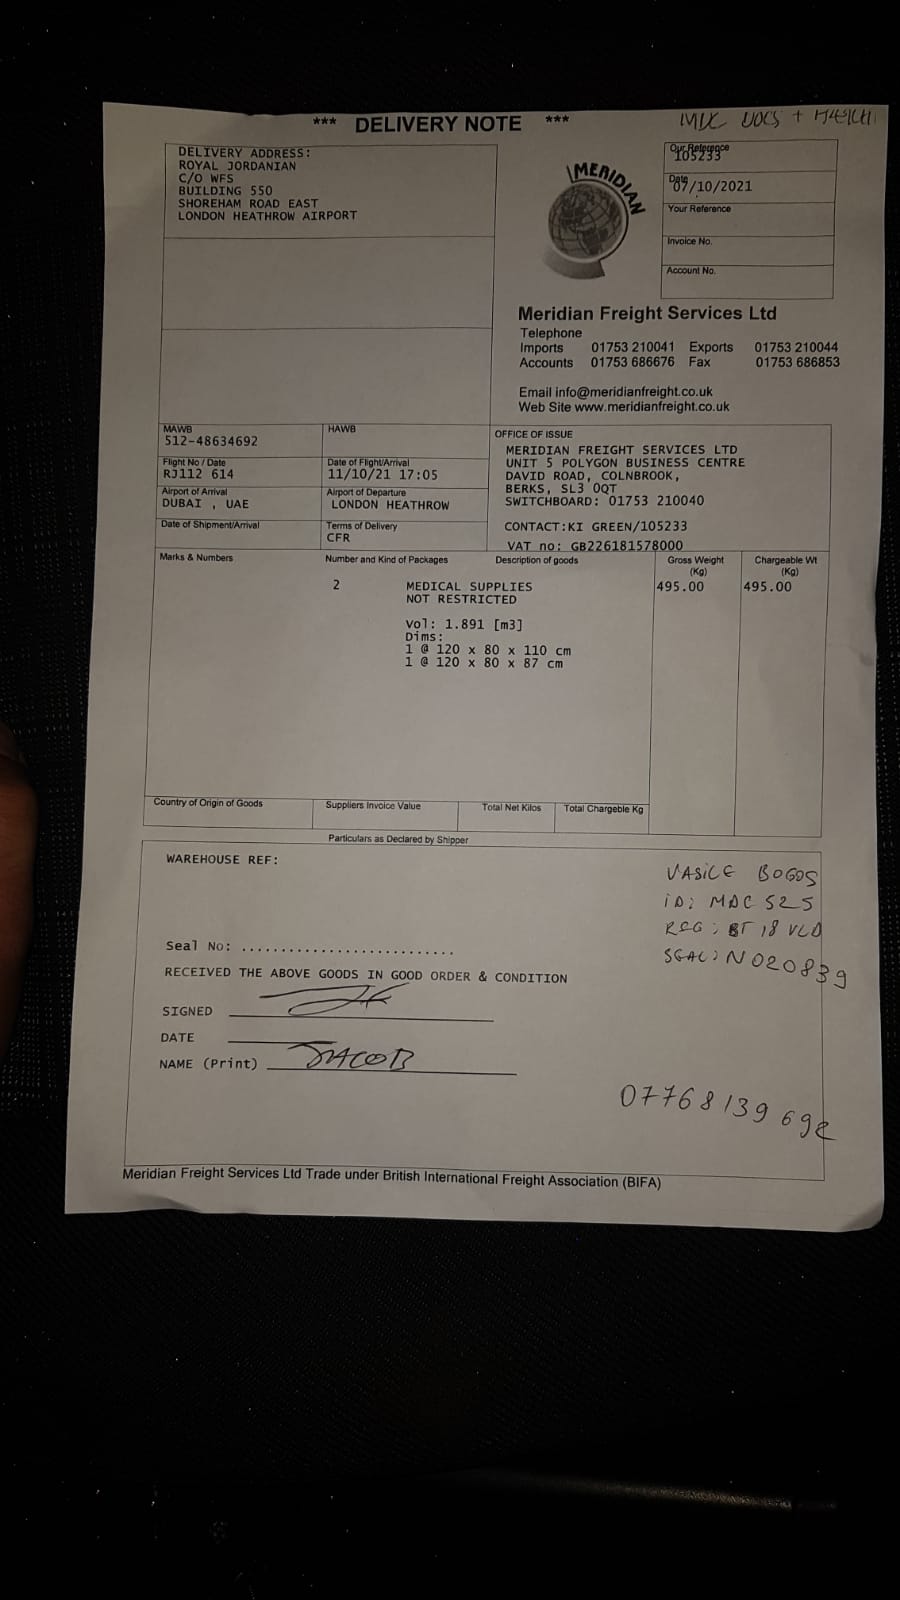 *** DELIVERY NOTE ***
MDC DOCS +
DELIVERY ADDRESS:
ROYAL JORDANIAN
C/O WFS
BUILDING 550
SHOREHAM ROAD EAST
LONDON HEATHROW AIRPORT
MERIDIAN
Our Reference
105233
Date
07/10/2021
Your Reference
Invoice No.
Account No.
Meridian Freight Services Ltd
Telephone
Imports 01753 210041 Exports 01753 210044
Accounts 01753 686676 Fax 01753 686853
Email info@meridianfreight.co.uk
Web Site www.meridianfreight.co.uk
MAWB
512-48634692
HAWB
Flight No / Date
RJ112 614
Date of Flight/Arrival
11/10/21 17:05
Airport of Arrival
DUBAI , UAE
Airport of Departure
LONDON HEATHROW
Date of Shipment/Arrival
Terms of Delivery
CFR
OFFICE OF ISSUE
MERIDIAN FREIGHT SERVICES LTD
UNIT 5 POLYGON BUSINESS CENTRE
DAVID ROAD, COLNBROOK,
BERKS, SL3 0QT
SWITCHBOARD: 01753 210040
CONTACT:KI GREEN/105233
VAT no: GB226181578000
Marks & Numbers Number and Kind of Packages Description of goods Gross Weight (Kg) Chargeable Wt (Kg)
2 MEDICAL SUPPLIES 495.00 495.00
NOT RESTRICTED
Vol: 1.891 [m3]
Dims:
1 @ 120 x 80 x 110 cm
1 @ 120 x 80 x 87 cm
Country of Origin of Goods Suppliers Invoice Value Total Net Kilos Total Chargeble Kg
Particulars as Declared by Shipper
WAREHOUSE REF:
VASILE BOGOS
ID: MDC 525
REG: BT 18 VLD
SEAL: N020839
Seal No: ...........................
RECEIVED THE ABOVE GOODS IN GOOD ORDER & CONDITION
SIGNED
DATE
NAME (Print) JACOB
07768139692
Meridian Freight Services Ltd Trade under British International Freight Association (BIFA)